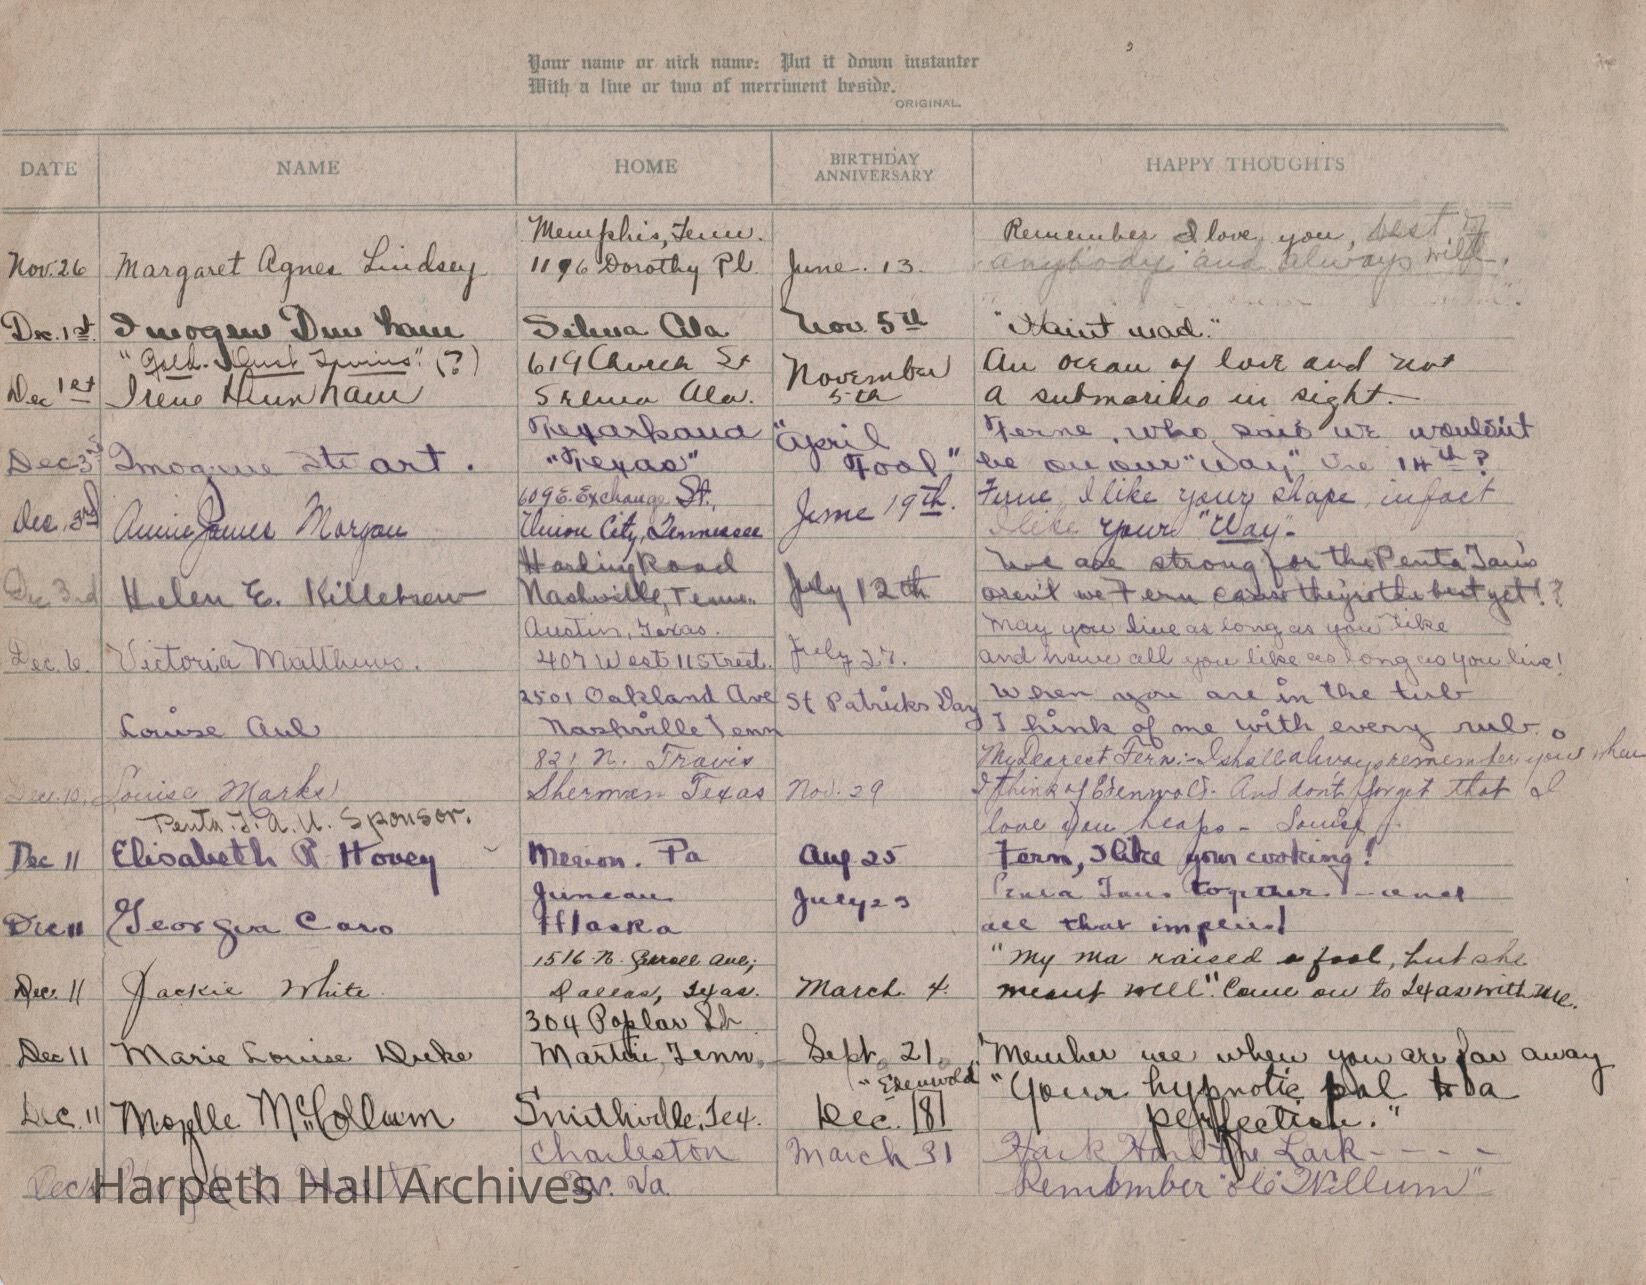 Your name or nick name: Put it down instanter
With a line or two of merriment beside.
ORIGINAL
DATE NAME HOME BIRTHDAY ANNIVERSARY HAPPY THOUGHTS
Memphis, Tenn. Remember I love you, best of
Nov. 26 Margaret Agnes Lindsey 1196 Dorothy Pl. June. 13. anybody and always will.
Dec. 1st. Imogene Dunham Selma Ala Nov. 5th "Haint mad."
"Gold-Dust Twins" (?) 619 Church St An ocean of love and not
Dec 1st Irene Dunham Selma Ala. November 5th a submarine in sight.
Texarkana "April Ferne, who said we wouldn't
Dec 3rd Imogene Stuart. "Texas" Fool" be on our "Way" the 14th?
609 E. Exchange St. Ferne, I like your shape, infact
Dec. 3rd Annie James Morgan Union City, Tennessee June 19th. I like your "Way"-
Harding Road We are strong for the Penta Tau's
Dec 3rd Helen E. Killebrew Nashville, Tenn. July 12th aren't we Fern cause they're the best yet!?
Austin, Texas. May you live as long as you like
Dec. 6. Victoria Matthews. 407 West 11 Street. July 27. and have all you like as long as you live!
2501 Oakland Ave St Patricks Day When you are in the tub
Louise Aul Nashville Tenn Think of me with every rub.
821 N. Travis My Dearest Fern:- I shall always remember you when
Dec. 10, Louise Marks Sherman Texas Nov. 29 I think of Edenwold. And don't forget that I
Penta T.A.U. Sponsor. love you heaps - Louise
Dec 11 Elisabeth R Hovey Merion. Pa Aug 25 Fern, I like your cooking!
Juneau Penta Taus together - and
Dec 11 Georgia Caro Alaska July 23 all that implies!
1516 N. Carroll Ave; "My ma raised a fool, but she
Dec. 11 Jackie White Dallas, Texas. March 4. meant well". Come on to Texas with me.
304 Poplar St.
Dec 11 Marie Louise Duke Martin, Tenn. Sept. 21. 'Member me when you are far away
"Edenwold" "Your hypnotic pal to a
Dec. 11 Mozelle McCollum Smithville, Tex. Dec. 181 perfection."
Charleston March 31 Hark Hark the Lark - - - -
Dec W. Va. Remember "ole Willum"
Harpeth Hall Archives